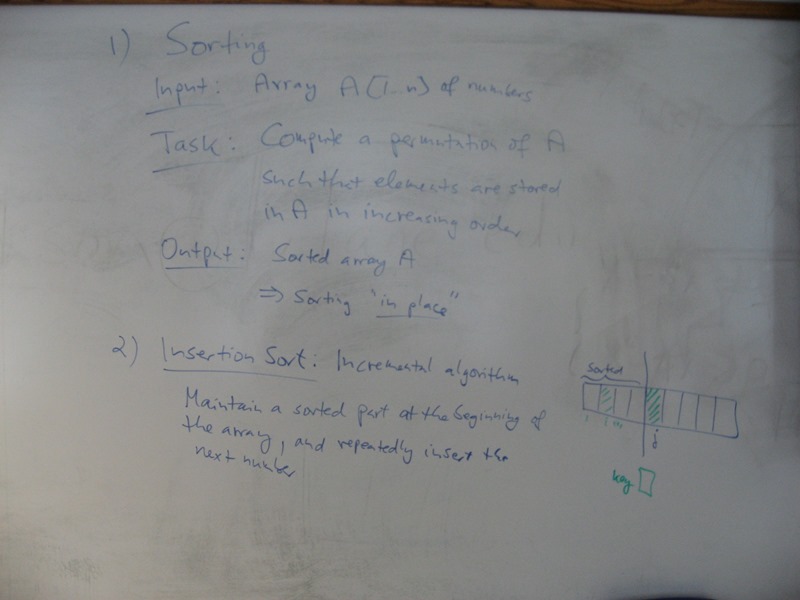 1) Sorting
Input: Array A[1..n] of numbers
Task: Compute a permutation of A
such that elements are stored
in A in increasing order
Output: Sorted array A
⇒ Sorting "in place"
2) Insertion Sort: Incremental algorithm
Maintain a sorted part at the beginning of
the array, and repeatedly insert the
next number
sorted
j
key